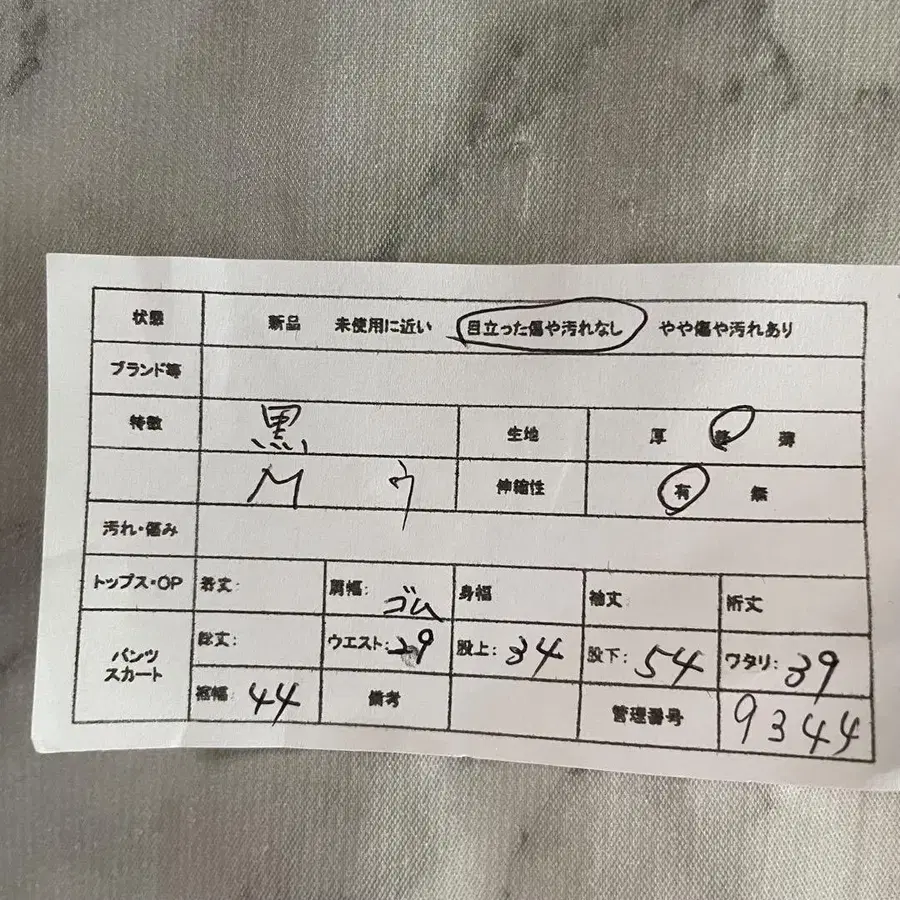 状態 新品 未使用に近い 目立った傷や汚れなし やや傷や汚れあり
ブランド等
特徴 黒 生地 厚 普 薄
M ウ 伸縮性 有 無
汚れ・傷み
トップス・OP 着丈: 肩幅: 身幅 袖丈 裄丈
パンツ スカート 総丈: ウエスト: ゴム 29 股上: 34 股下: 54 ワタリ: 39
裾幅: 44 備考 管理番号 9344